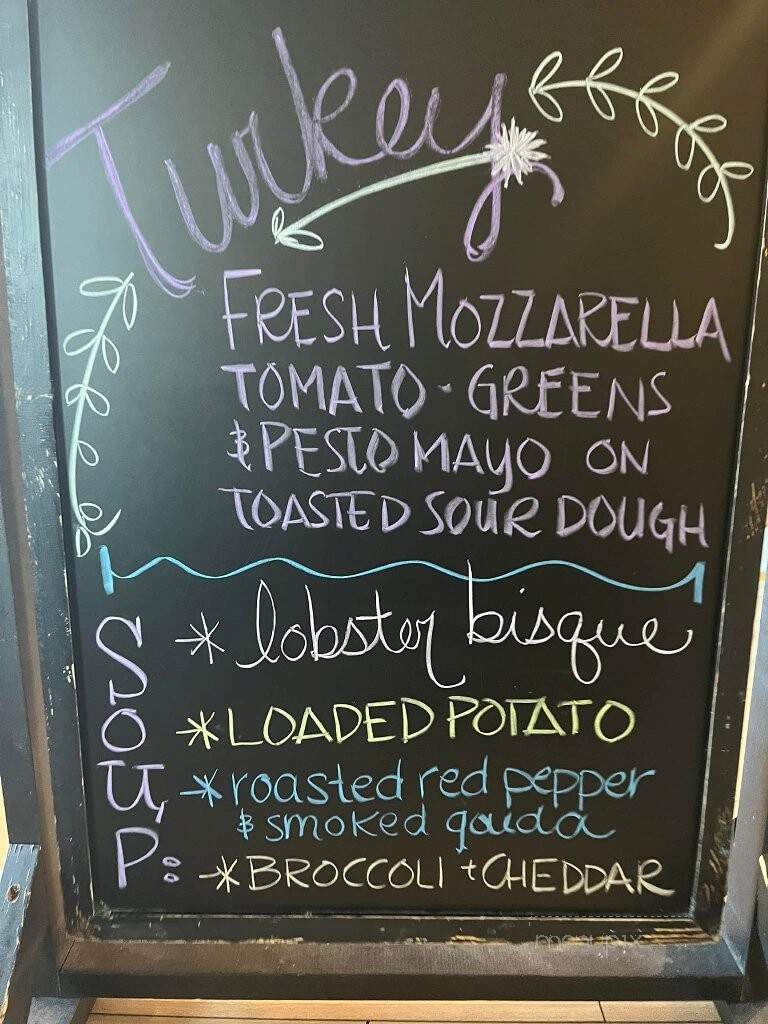 Turkey
FRESH MOZZARELLA
TOMATO - GREENS
& PESTO MAYO ON
TOASTED SOUR DOUGH
SOUP:
* lobster bisque
* LOADED POTATO
* roasted red pepper
& smoked gouda
* BROCCOLI + CHEDDAR